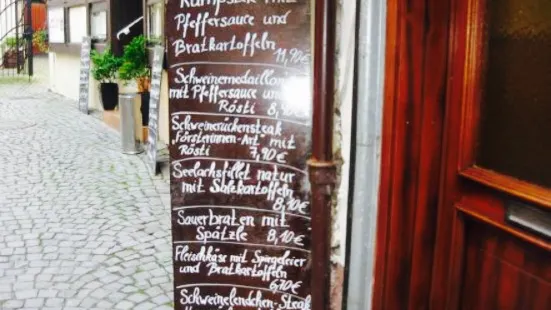 Rumpsteak mit
Pfeffersauce und
Bratkartoffeln
11,90€
Schweinemedaillon
mit Pfeffersauce und
Rösti 8,90€
Schweinerückensteak
„Försterinnen-Art" mit
Rösti 7,90€
Seelachsfilet natur
mit Salzkartoffeln
8,10€
Sauerbraten mit
Spätzle 8,10€
Fleischkäse mit Spiegeleier
und Bratkartoffeln
6,70€
Schweinelendchen-Steak